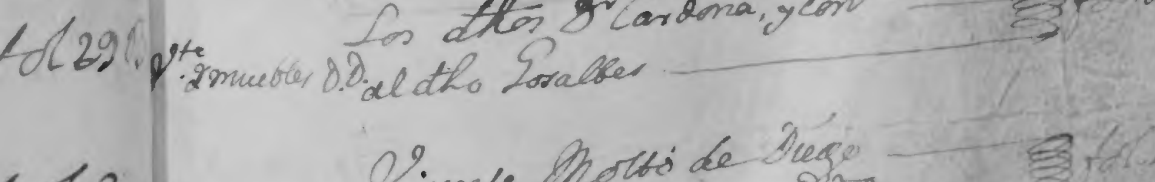 Los dhos Dr Cardona, y con
fol 291. Vte
de muebles D.D. al dho Gosalbes
Vicente Moltó de Diego